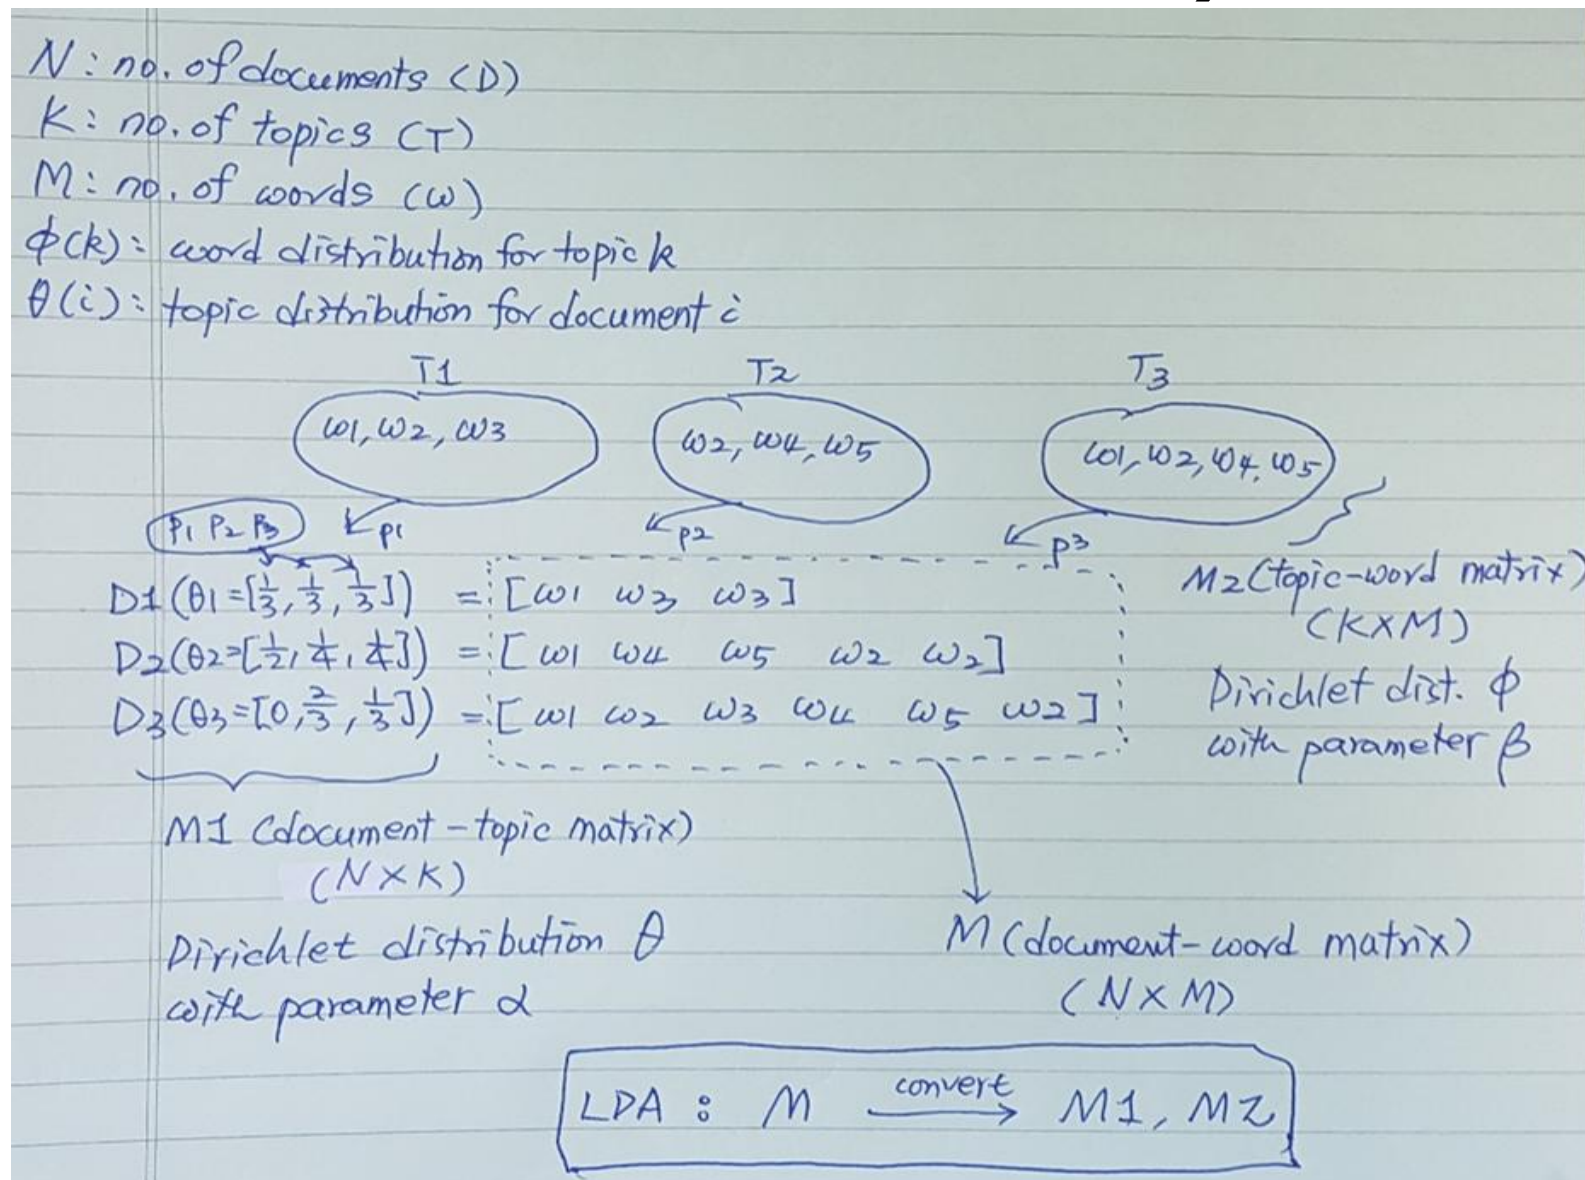 N : no. of documents (D)
K : no. of topics (T)
M : no. of words (ω)
ϕ(k) : word distribution for topic k
θ(i) : topic distribution for document i
T1 T2 T3
ω1, ω2, ω3 ω2, ω4, ω5 ω1, ω2, ω4, ω5
P1 P2 P3 p1 p2 p3
D1 (θ1 = [1/3, 1/3, 1/3]) = [ω1 ω3 ω3]
D2 (θ2 = [1/2, 1/4, 1/4]) = [ω1 ω4 ω5 ω2 ω2]
D3 (θ3 = [0, 2/3, 1/3]) = [ω1 ω2 ω3 ω4 ω5 ω2]
M2 (topic-word matrix)
(K×M)
Dirichlet dist. ϕ
with parameter β
M1 (document-topic matrix)
(N×K)
Dirichlet distribution θ
with parameter α
M (document-word matrix)
(N×M)
LDA : M convert → M1, M2